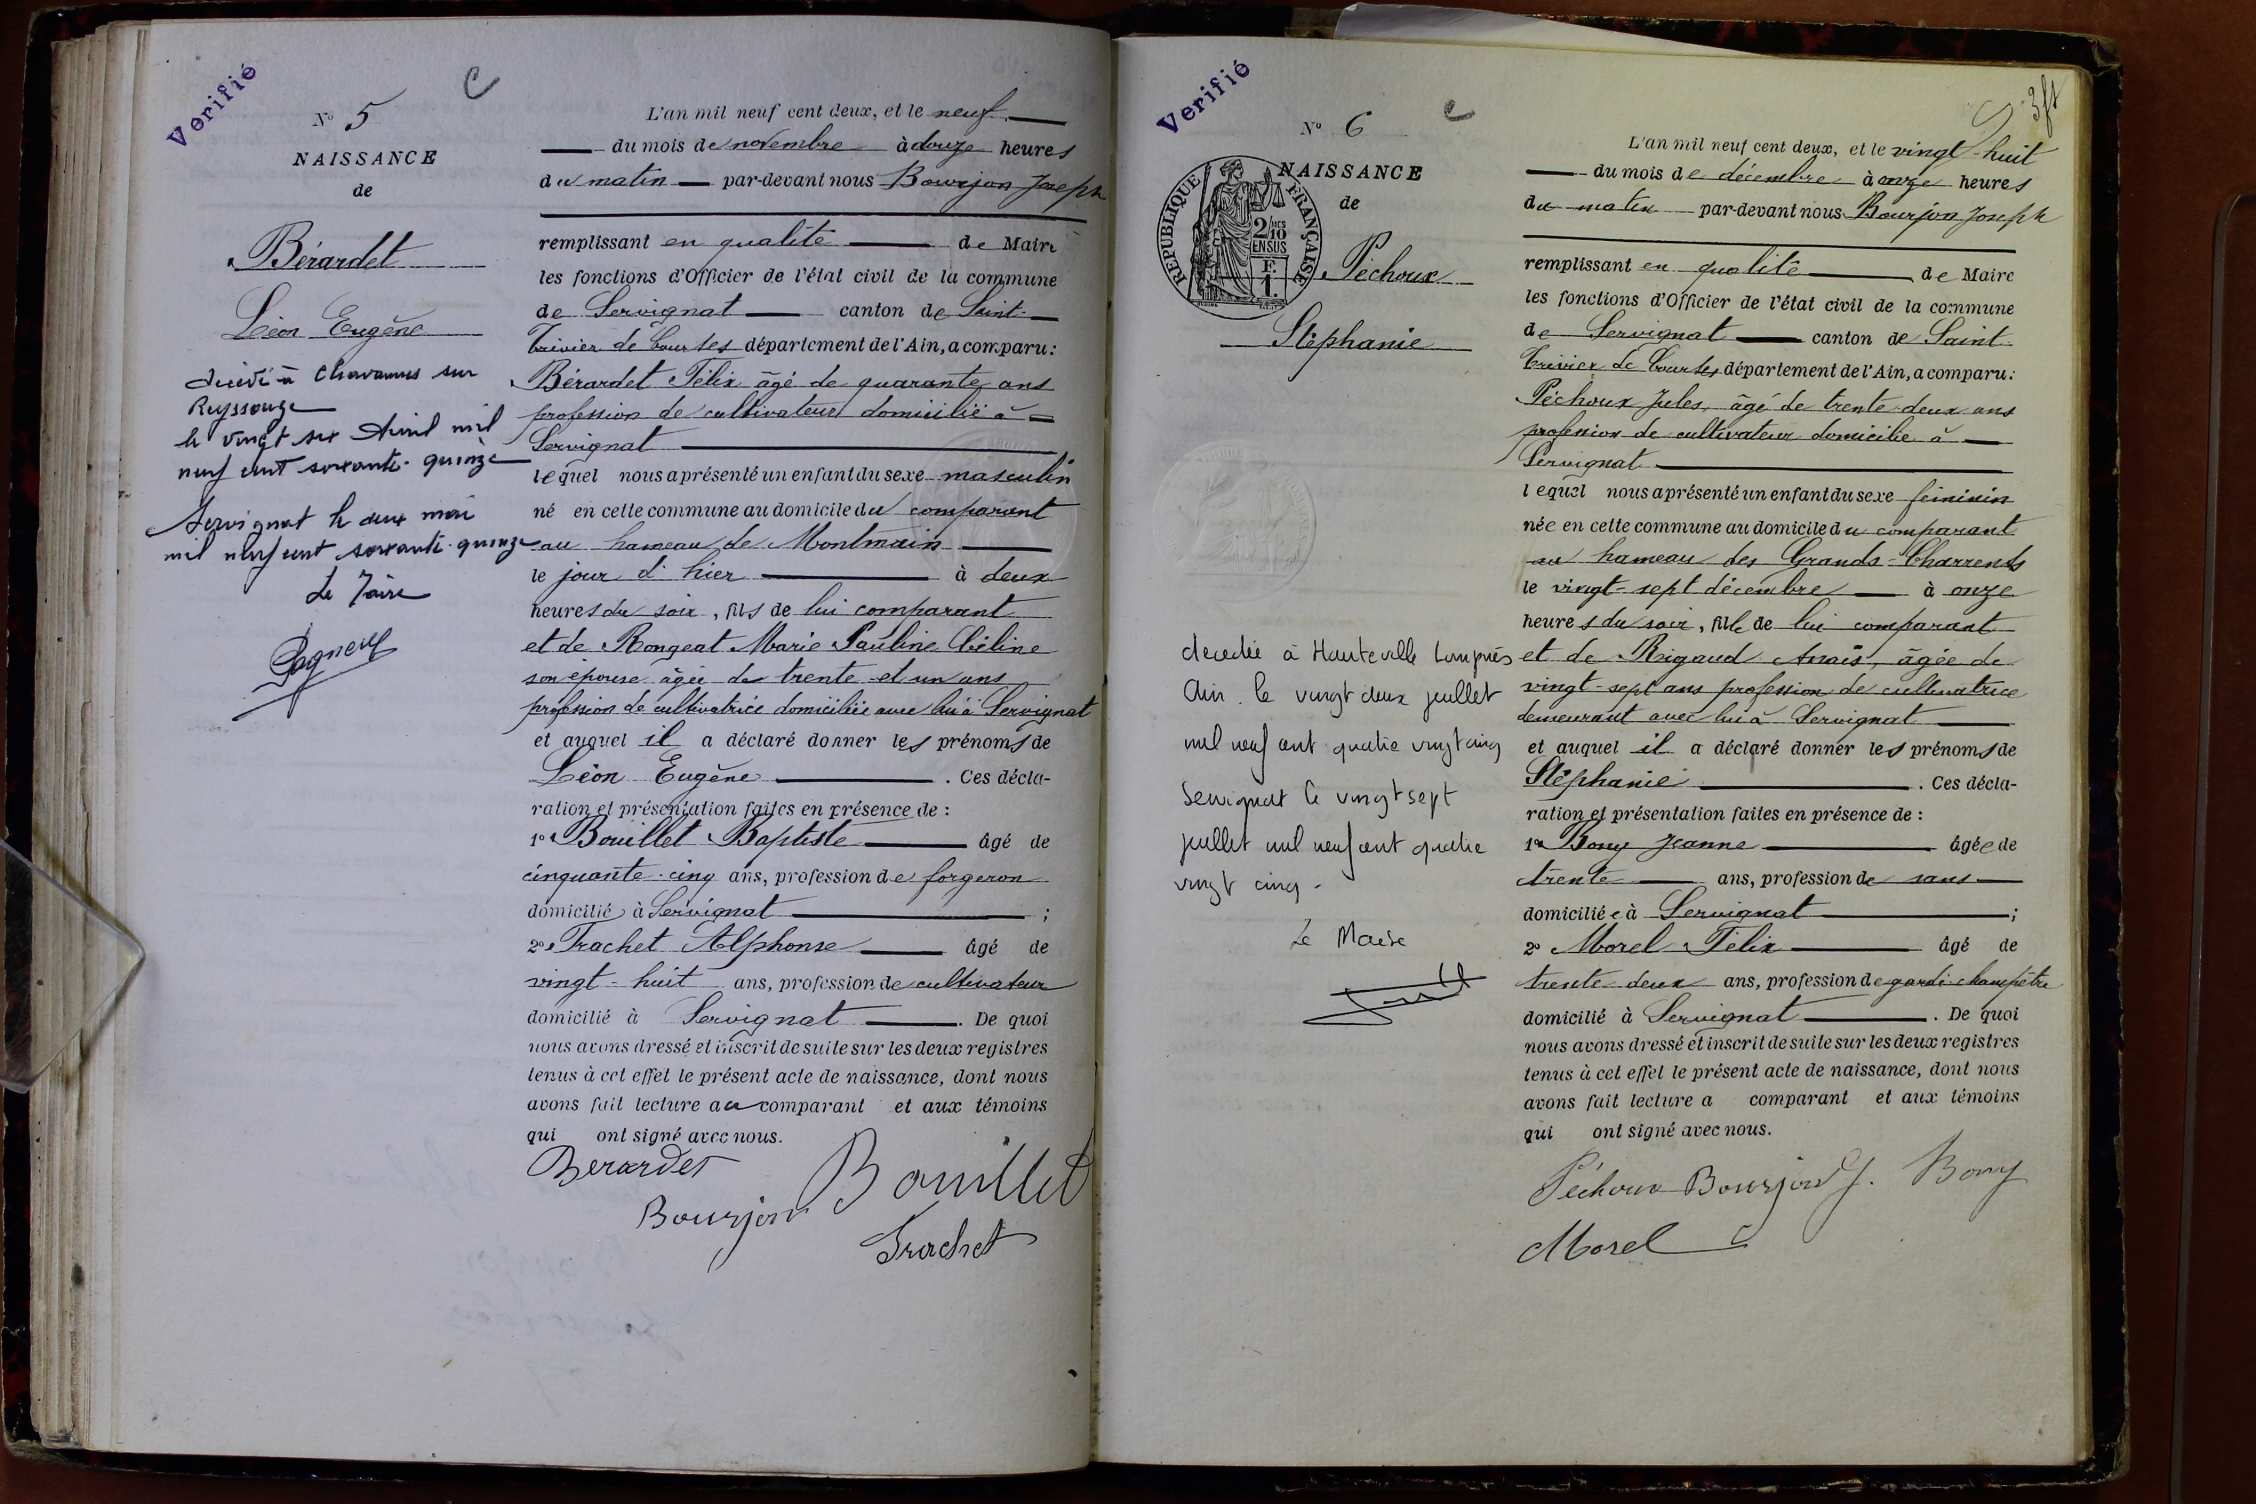 Verifié
C
N° 5
NAISSANCE
de
Bérardet
Léon Eugène
décédé à Chavannes sur
Reyssouze
le vingt six Avril mil
neuf cent soixante-quinze
Servignat le deux mai
mil neuf cent soixante-quinze
Le Maire
L'an mil neuf cent deux, et le neuf
du mois de novembre à douze heures
du matin par-devant nous Bourjon Joseph
remplissant en qualité de Maire
les fonctions d'Officier de l'état civil de la commune
de Servignat canton de Saint-
Trivier de Courtes département de l'Ain, a comparu :
Bérardet Félix âgé de quarante ans
profession de cultivateur domicilié à
Servignat
lequel nous a présenté un enfant du sexe masculin
né en cette commune au domicile du comparant
au hameau de Montmain
le jour d'hier à deux
heures du soir, fils de lui comparant
et de Rongeat Marie Pauline Céline
son épouse âgée de trente et un ans
profession de cultivatrice domiciliée avec lui à Servignat
et auquel il a déclaré donner les prénoms de
Léon Eugène . Ces décla-
ration et présentation faites en présence de :
1° Bouillet Baptiste âgé de
cinquante-cinq ans, profession de forgeron
domicilié à Servignat ;
2° Trachet Alphonse âgé de
vingt-huit ans, profession de cultivateur
domicilié à Servignat . De quoi
nous avons dressé et inscrit de suite sur les deux registres
tenus à cet effet le présent acte de naissance, dont nous
avons fait lecture au comparant et aux témoins
qui ont signé avec nous.
Berardet Bouillet
Bourjon
Trachet
Verifié
C
N° 6
NAISSANCE
de
RÉPUBLIQUE FRANÇAISE
2/10
EN SUS
Péchoux
Stéphanie
decedée à Hauteville Lompnès
Ain. le vingt deux juillet
mil neuf cent quatre vingt cinq
Servignat le vingt sept
juillet mil neuf cent quatre
vingt cinq.
Le Maire
L'an mil neuf cent deux, et le vingt-huit
du mois de décembre à onze heures
du matin par-devant nous Bourjon Joseph
remplissant en qualité de Maire
les fonctions d'Officier de l'état civil de la commune
de Servignat canton de Saint-
Trivier de Courtes département de l'Ain, a comparu :
Péchoux Jules, âgé de trente-deux ans
profession de cultivateur domicilié à
Servignat
lequel nous a présenté un enfant du sexe féminin
née en cette commune au domicile du comparant
au hameau des Grands-Charrents
le vingt-sept décembre à onze
heures du soir, fille de lui comparant
et de Rigaud Anaïs, âgée de
vingt-sept ans profession de cultivatrice
demeurant avec lui à Servignat
et auquel il a déclaré donner les prénoms de
Stéphanie . Ces décla-
ration et présentation faites en présence de :
1° Bony Jeanne âgée de
trente ans, profession de sans
domiciliée à Servignat ;
2° Morel Félix âgé de
trente-deux ans, profession de garde-champêtre
domicilié à Servignat . De quoi
nous avons dressé et inscrit de suite sur les deux registres
tenus à cet effet le présent acte de naissance, dont nous
avons fait lecture a comparant et aux témoins
qui ont signé avec nous.
Péchoux Bourjon J. Bony
Morel